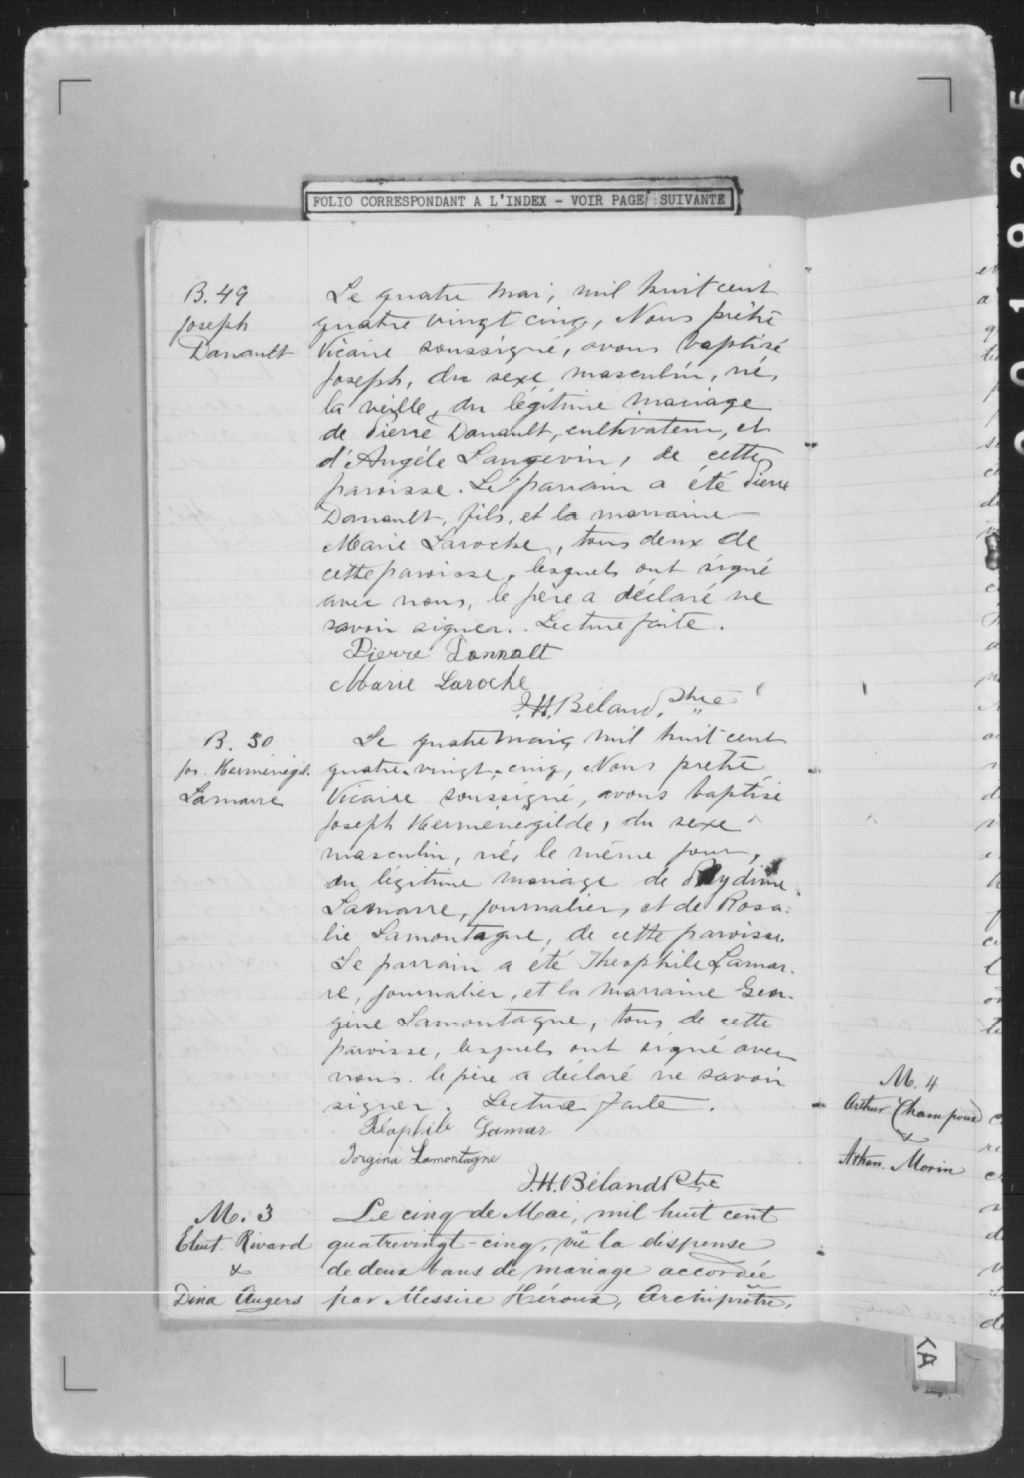 FOLIO CORRESPONDANT A L'INDEX - VOIR PAGE SUIVANTE
B. 49
Joseph
Danault
Le quatre mai, mil huit cent
quatre vingt cinq, Nous prêtre
Vicaire soussigné, avons baptisé
Joseph, du sexe masculin, né,
la veille, du légitime mariage
de Pierre Danault, cultivateur, et
d'Angéle Langevin, de cette
paroisse. Le parrain a été Pierre
Danault, fils, et la marraine
Marie Laroche, tous deux de
cette paroisse, lesquels ont signé
avec nous, le père a déclaré ne
savoir signer. Lecture faite.
Pierre Dannalt
Marie Laroche
J.H. Béland, Ptre
B. 50
Jos. Herménégil.
Lamarre
Le quatre mai, mil huit cent
quatre-vingt-cinq, Nous prêtre
Vicaire soussigné, avons baptisé
Joseph Herménégilde, du sexe
masculin, né, le même jour,
du légitime mariage de
Lamarre, journalier, et de Rosa-
lie Lamontagne, de cette paroisse.
Le parrain a été Théophile Lamar-
re, journalier, et la marraine Geor-
gine Lamontagne, tous de cette
paroisse, lesquels ont signé avec
nous. le père a déclaré ne savoir
signer. Lecture faite.
Téophile Lamar
Jorgina Lamontagne
J.H. Béland Ptre
M. 3
Eleut. Rivard
&
Dina Augers
Le cinq de Mai, mil huit cent
quatrevingt-cinq, vû la dispense
de deux bans de mariage accordée
par Messire Héroux, Archiprêtre,
M. 4
Arthur Champoux
&
Morin